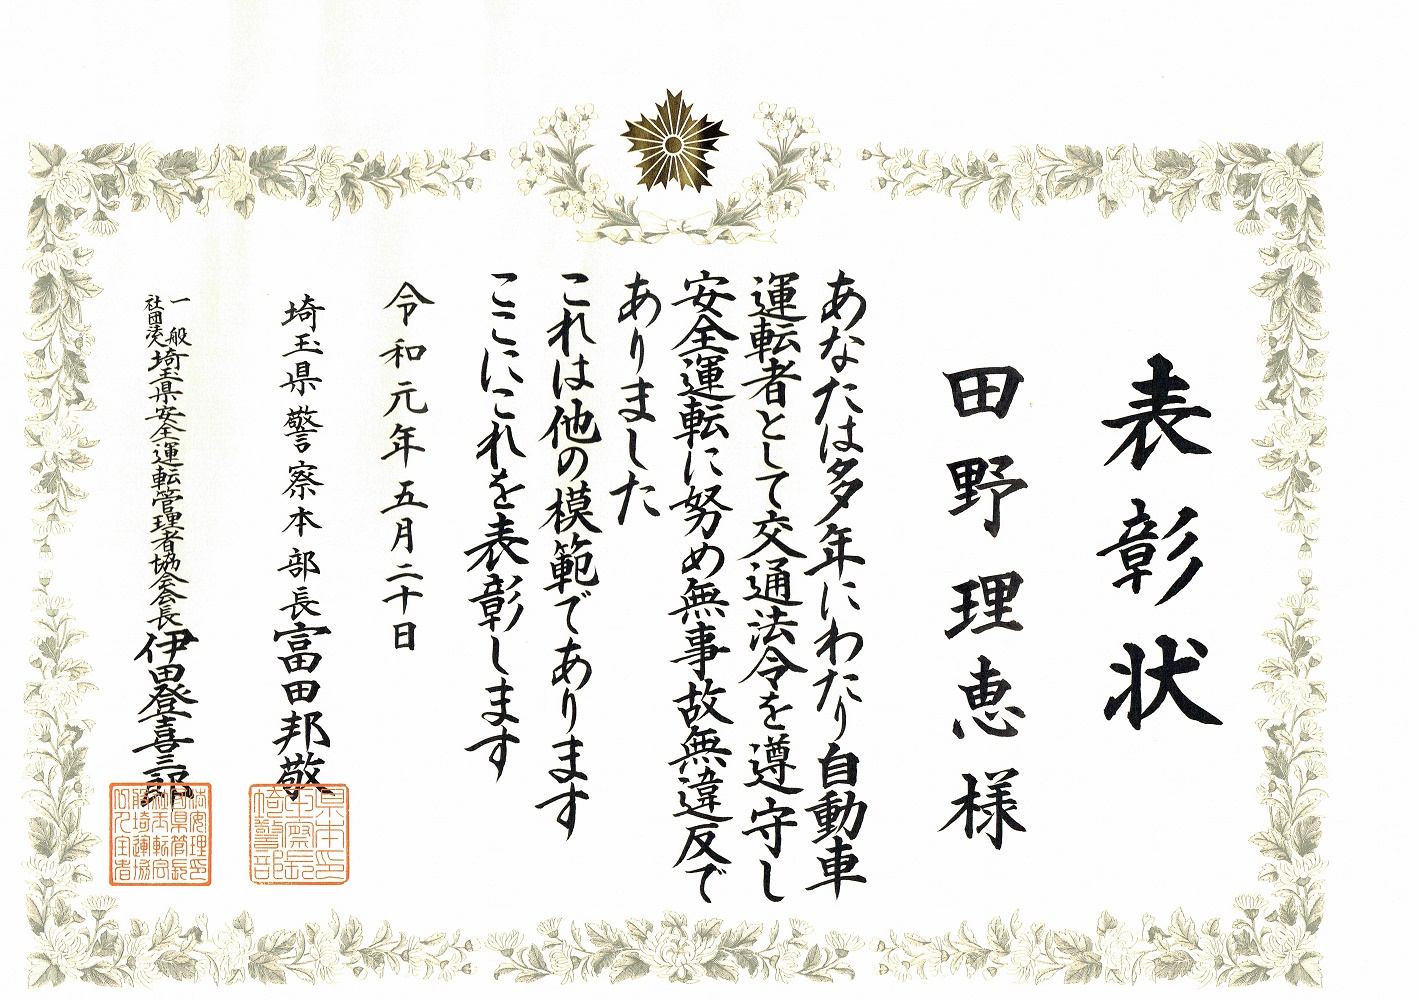 表彰状
田野理恵様
あなたは多年にわたり自動車
運転者として交通法令を遵守し
安全運転に努め無事故無違反で
ありました
これは他の模範であります
ここにこれを表彰します
令和元年五月二十日
埼玉県警察本部長富田邦敬
一般社団法人埼玉県安全運転管理者協会会長伊田登喜三郎